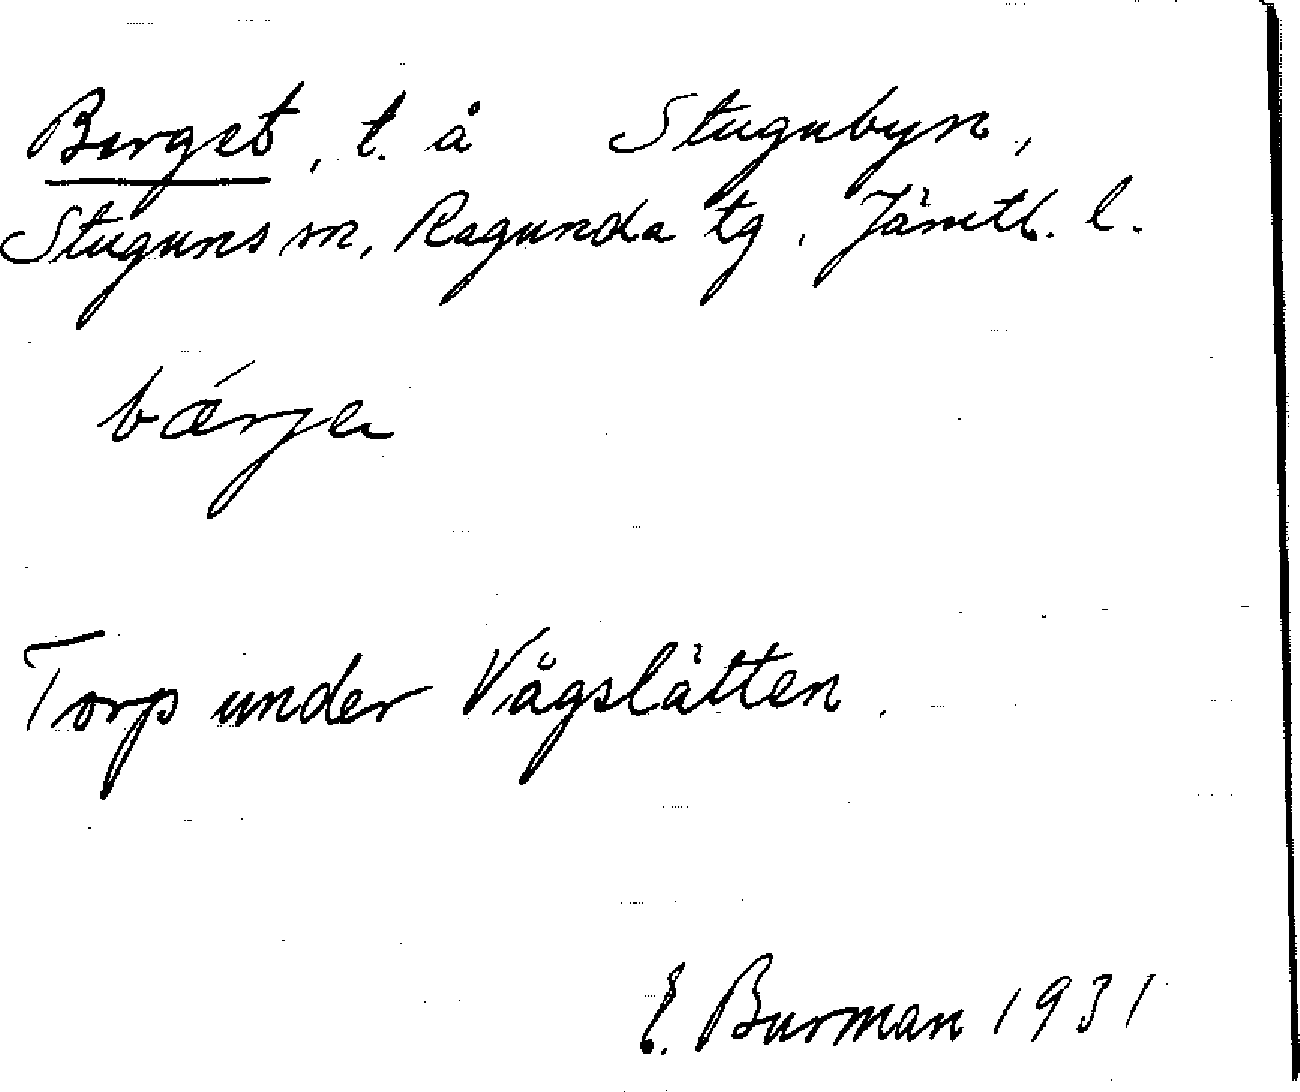 Berget, t. å Stugubyn,
Stuguns sn, Ragunda tg, Jämtl. l.
bǽrjen
Torp under Vågslätten.
E. Burman 1931